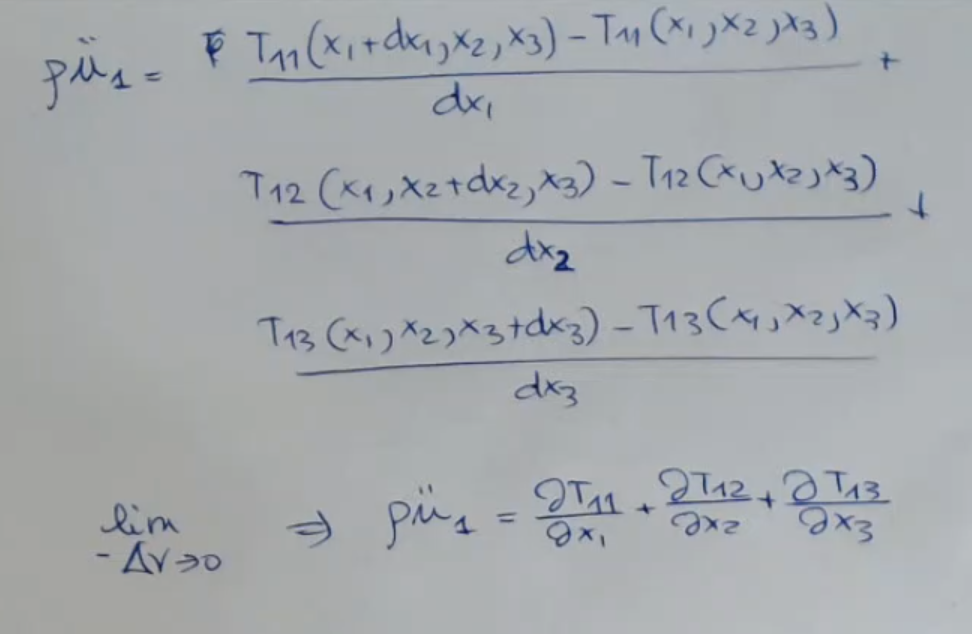 ρü₁ = T₁₁(x₁+dx₁,x₂,x₃) − T₁₁(x₁,x₂,x₃) +
dx₁
T₁₂(x₁,x₂+dx₂,x₃) − T₁₂(x₁,x₂,x₃) +
dx₂
T₁₃(x₁,x₂,x₃+dx₃) − T₁₃(x₁,x₂,x₃)
dx₃
lim ⇒ ρü₁ = ∂T₁₁/∂x₁ + ∂T₁₂/∂x₂ + ∂T₁₃/∂x₃
- ΔV→0